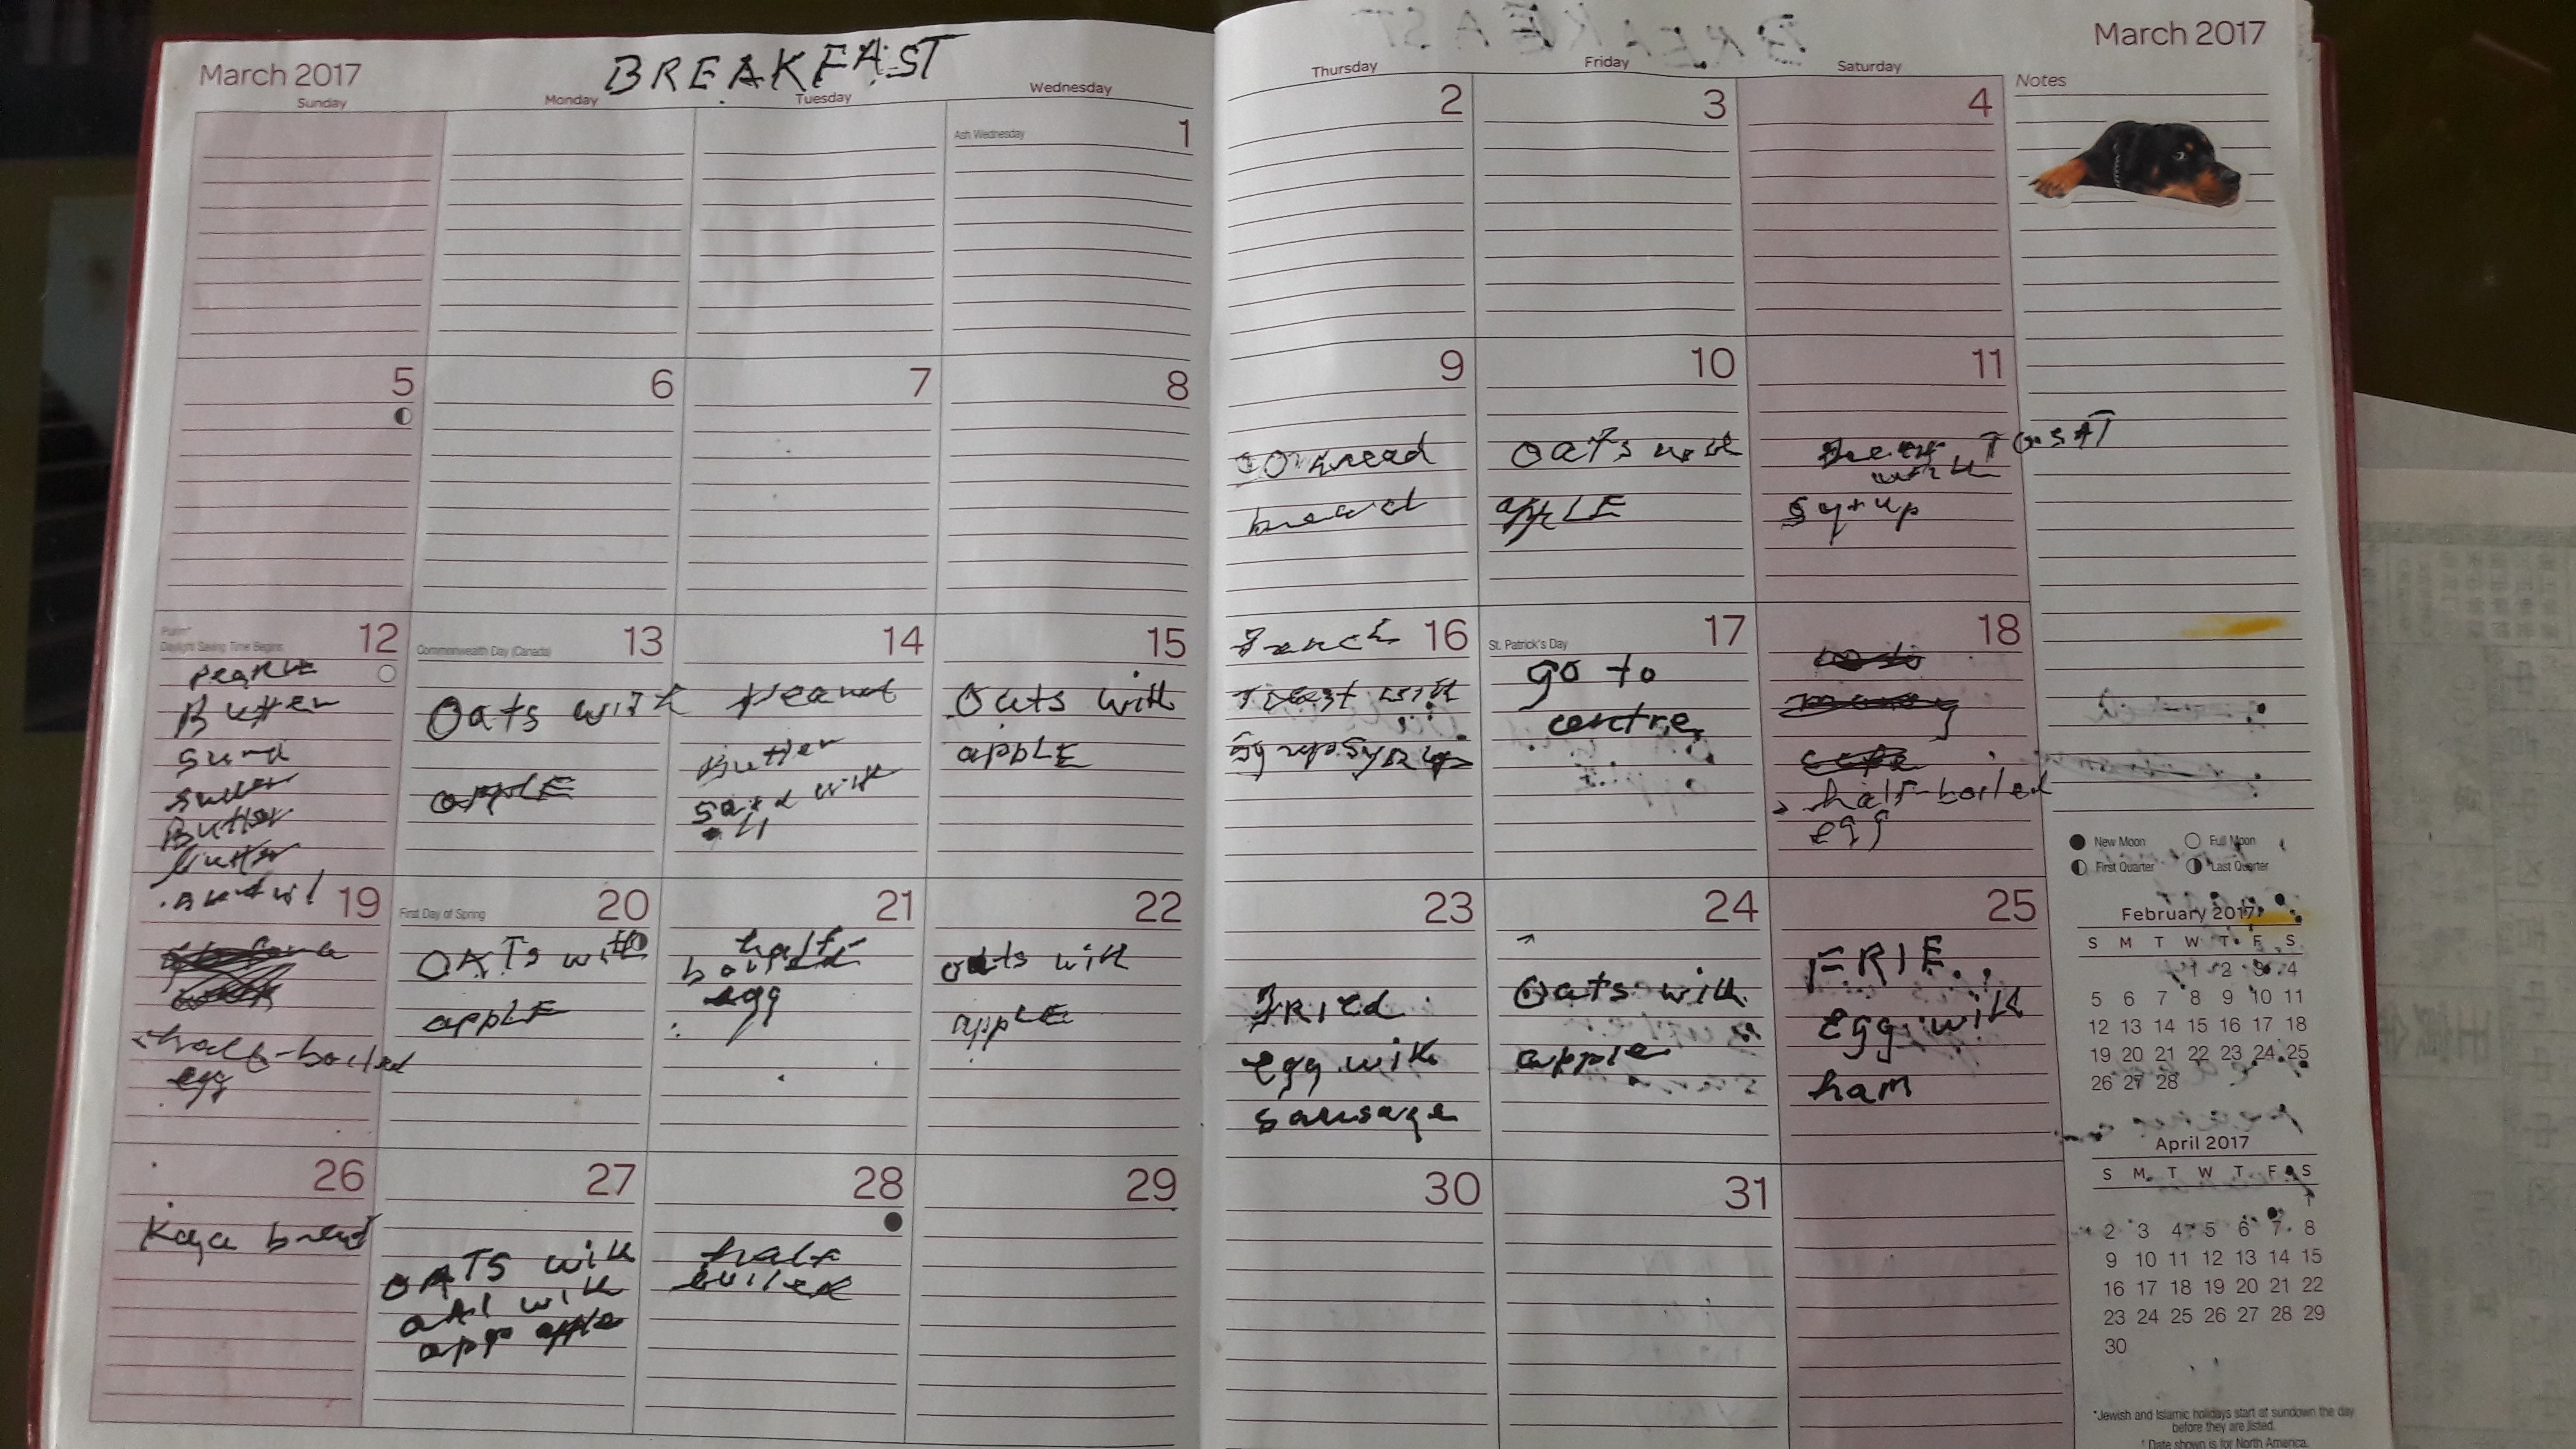 March 2017
BREAKFAST
Sunday
Monday
Tuesday
Wednesday
Ash Wednesday
1
5
6
7
8
Purim*
Daylight Saving Time Begins
12
Butter
Butter
Commonwealth Day (Canada)
13
Oats with
apple
14
Peanut
Butter
with
15
Oats with
appLE
19
half-boiled
egg
First Day of Spring
20
OATs with
appLE
21
half-
boiled
egg
22
oats with
appLE
26
Kaya bread
27
OATS with
with
app apple
28
half
boiled
29
March 2017
Thursday
Friday
Saturday
Notes
2
3
4
9
bread
10
Oats with
appLE
11
TOSAT
with
Syrup
16
French
with
17
St. Patrick's Day
go to
centre
18
half-boiled
egg
23
FRIed
egg with
sausage
24
Oats with
apple
25
FRIE
Egg with
ham
30
31
New Moon
Full Moon
First Quarter
Last Quarter
February 2017
S M T W T F S
1 2 3 4
5 6 7 8 9 10 11
12 13 14 15 16 17 18
19 20 21 22 23 24 25
26 27 28
April 2017
S M T W T F S
1
2 3 4 5 6 7 8
9 10 11 12 13 14 15
16 17 18 19 20 21 22
23 24 25 26 27 28 29
30
*Jewish and Islamic holidays start at sundown the day
before they are listed.
† Date shown is for North America.